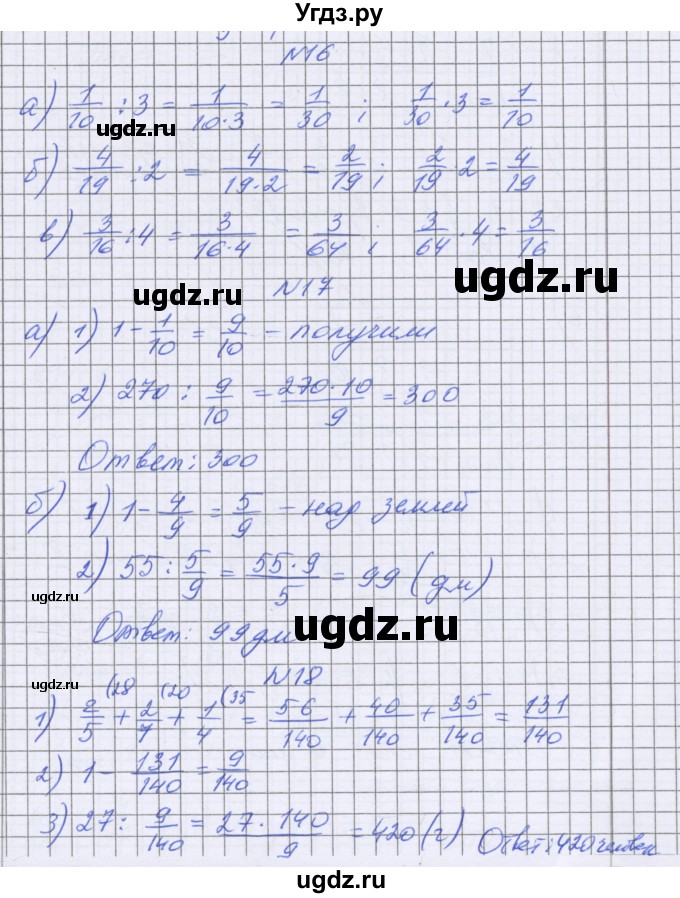 Угдз.ру
№16
а) 1/10 : 3 = 1/(10·3) = 1/30 ; 1/30 · 3 = 1/10
ugdz.ru ugdz.ru
б) 4/19 : 2 = 4/(19·2) = 2/19 ; 2/19 · 2 = 4/19
в) 3/16 : 4 = 3/(16·4) = 3/64 ; 3/64 · 4 = 3/16
ugdz.ru
№17
ugdz.ru
а) 1) 1 - 1/10 = 9/10 - получили
2) 270 : 9/10 = (270·10)/9 = 300
Ответ: 300
ugdz.ru
б) 1) 1 - 4/9 = 5/9 - над землей
2) 55 : 5/9 = (55·9)/5 = 99 (дм)
ugdz.ru
Ответ: 99 дм
ugdz.ru
№18
ugdz.ru
1) 2/5 (28 + 2/7 (20 + 1/4 (35 = 56/140 + 40/140 + 35/140 = 131/140
2) 1 - 131/140 = 9/140
3) 27 : 9/140 = (27·140)/9 = 420 (г) Ответ: 420 человек
ugdz.ru